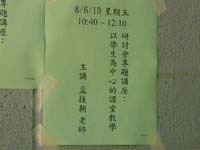 8/6/10 星期五
10:40~12:10
研討會專題講座：
以學生為中心的課室教學
主講 孟援朝 老師
專題講座：